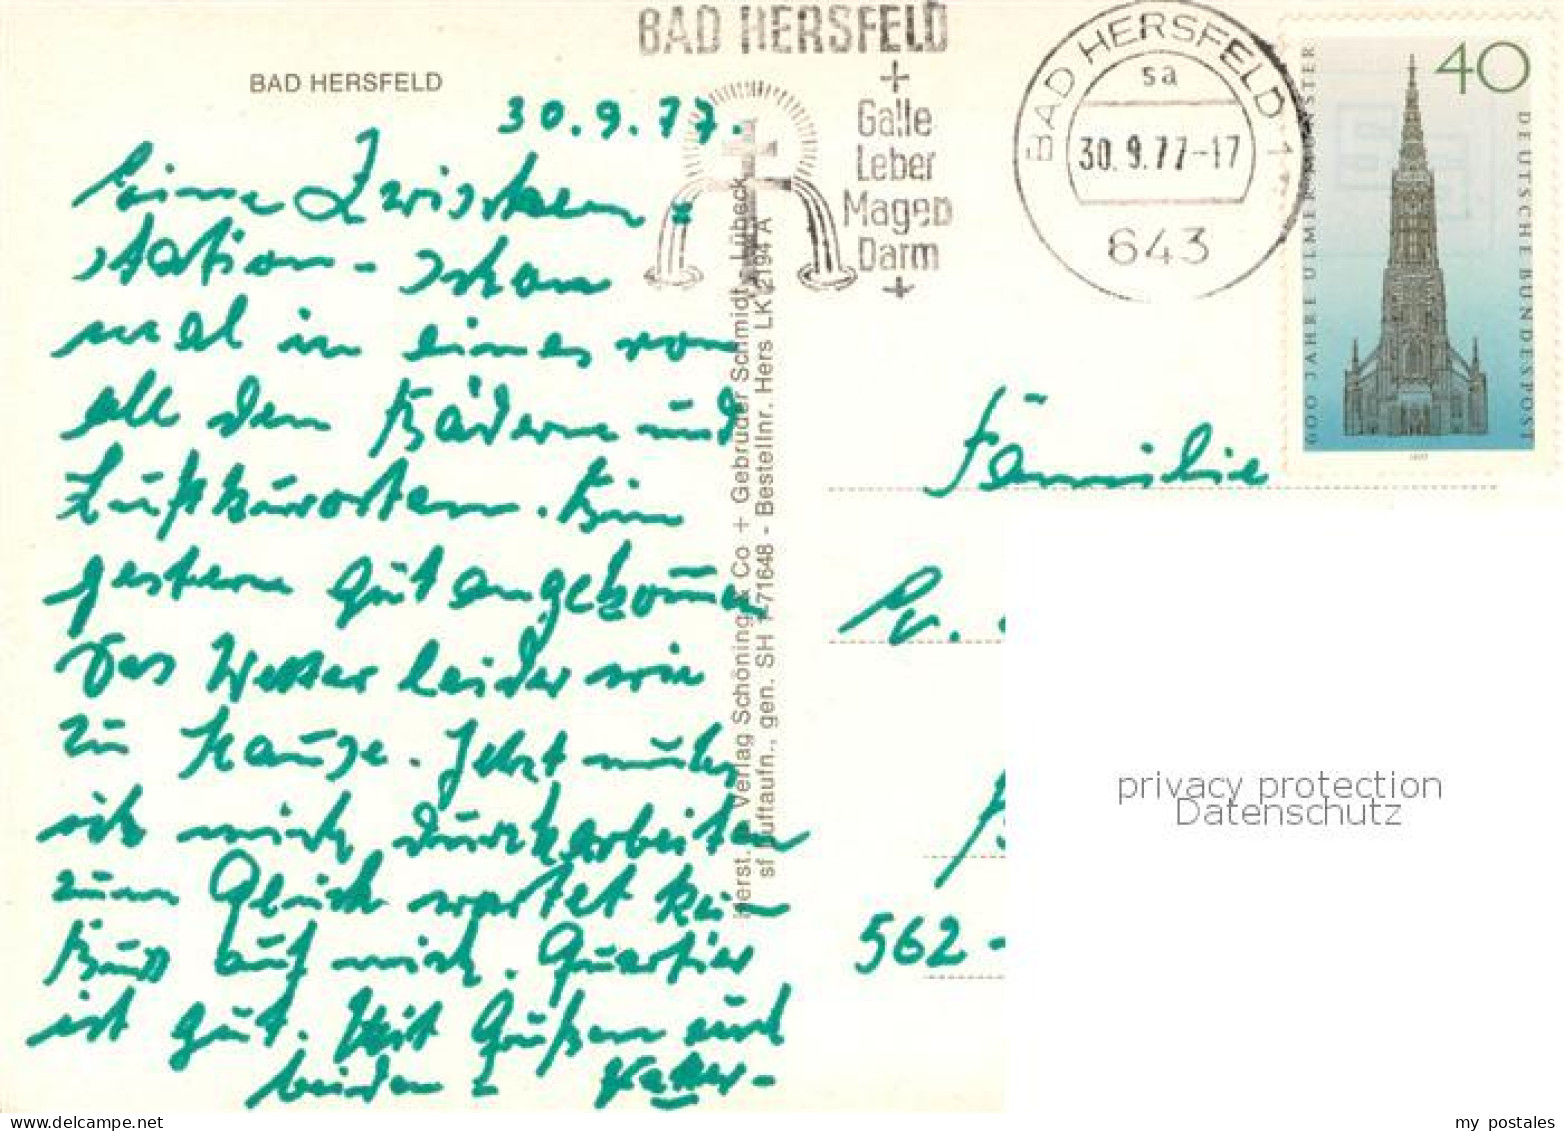 BAD HERSFELD
30.9.77.
Eine Zwischen=
station - schon
mal in eines von
all den Bädern und
Luftkurorten. Bin
gestern gut angekommen
Das Wetter leider wie
zu Hause. Jetzt muß
ich mich durcharbeiten
zum Glück wartet kein
auf mich. Quartier
ist gut. Mit Grüßen und
beiden Vatter-
Verlag Schöning & Co + Gebrüder Schmidt - Lübeck
sf Luftaufn., gen. SH 1-71648 - Bestellnr. Hers LK 2194 A
BAD HERSFELD
+
Galle
Leber
Magen
Darm
+
BAD HERSFELD 1
sa
30.9.77-17
643
40
600 JAHRE ULMER MÜNSTER
DEUTSCHE BUNDESPOST
1977
Familie
562-
privacy protection
Datenschutz
my postales